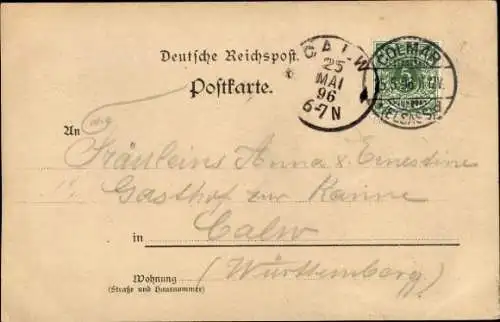 Deutsche Reichspost.
Postkarte.
CALW
25
MAI
96
6-7N
COLMAR
5
(ELSASS)
An
Fräuleins Anna & Ernestine
Gasthof zur Kanne
in Calw
(Württemberg)
Wohnung
(Straße und Hausnummer)